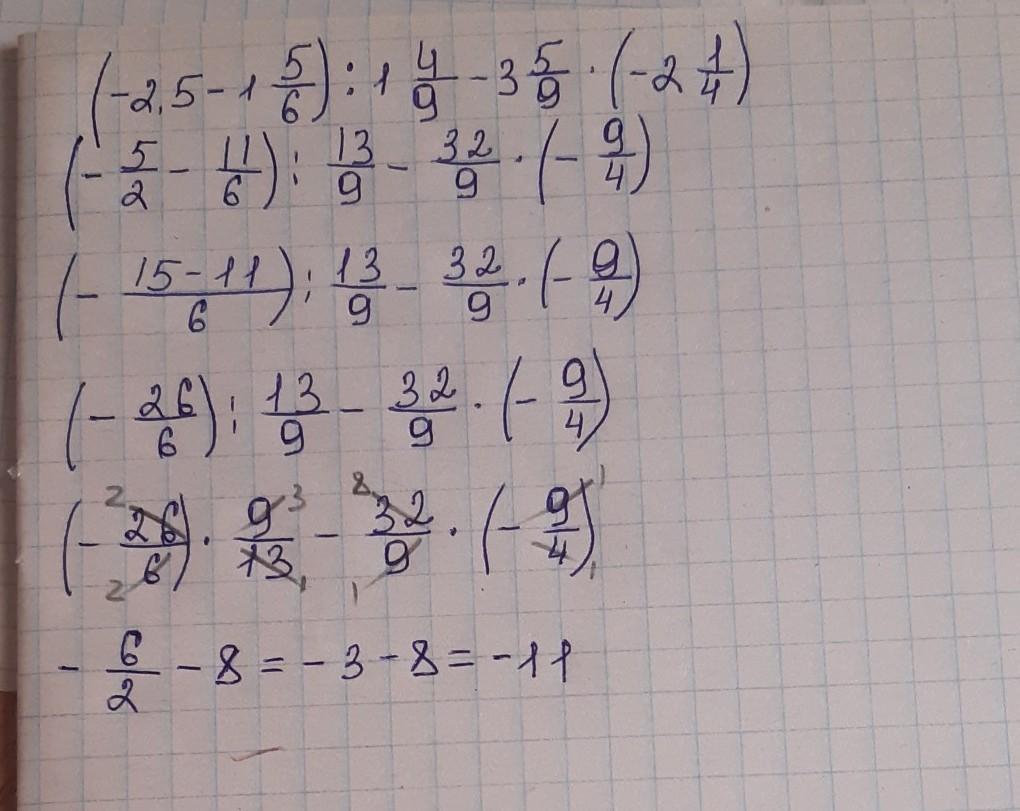 (-2,5 - 1 5/6) : 1 4/9 - 3 5/9 · (-2 1/4)
(- 5/2 - 11/6) : 13/9 - 32/9 · (- 9/4)
(- 15-11/6) : 13/9 - 32/9 · (- 9/4)
(- 26/6) : 13/9 - 32/9 · (- 9/4)
(- 2 26/6 2) · 9 3/13 1 - 8 32/9 1 · (- 9 1/4 1)
- 6/2 - 8 = - 3 - 8 = -11